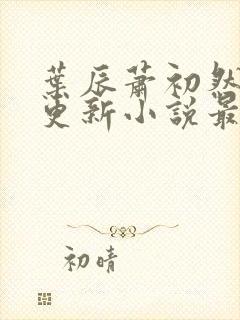 葉辰蕭初然
更新小說最
初晴